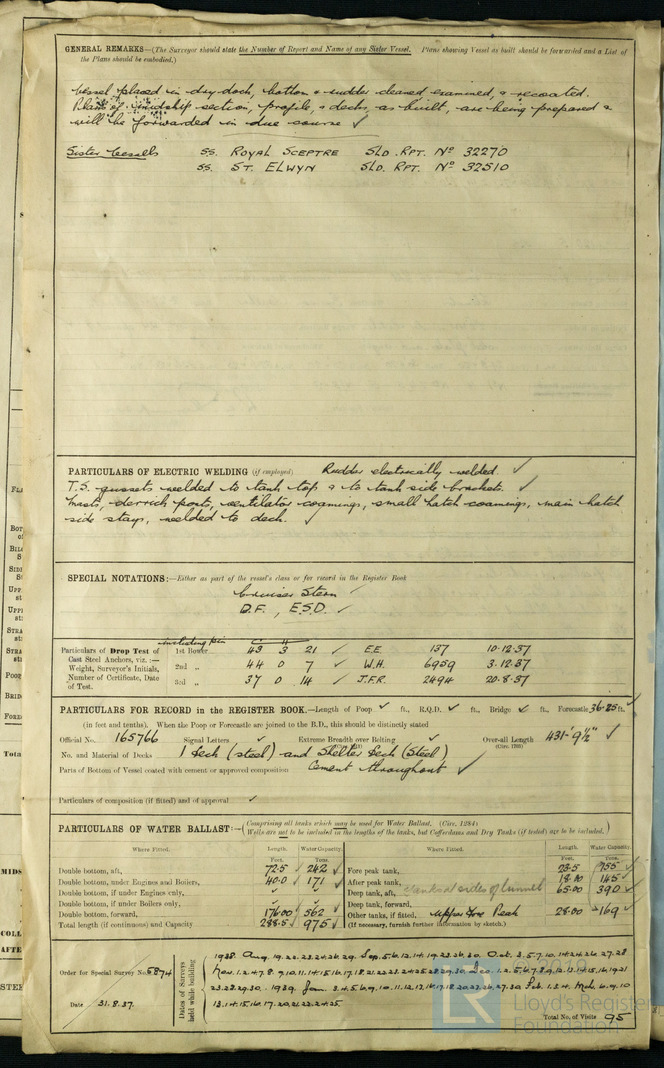 GENERAL REMARKS—(The Surveyor should state the Number of Report and Name of any Sister Vessel. Plans showing Vessel as built should be forwarded and a List of
the Plans should be embodied.)
Vessel placed in dry dock, bottom & rudder cleaned examined, & recoated.
Plans of midship section, profile, & decks, as built, are being prepared &
will be forwarded in due course ✓
Sister Vessels SS. ROYAL SCEPTRE SLD. RPT. Nº 32270
SS. ST. ELWYN SLD. RPT. Nº 32510
PARTICULARS OF ELECTRIC WELDING (if employed) Rudder electrically welded. ✓
T.S. gussets welded to tank top & to tank side brackets. ✓
Masts, derrick posts, ventilator coamings, small hatch coamings, main hatch
side stays, welded to deck. ✓
SPECIAL NOTATIONS:—Either as part of the vessel's class or for record in the Register Book
Cruiser Stern ✓
D.F., E.S.D. ✓
including pin
Particulars of Drop Test of 1st Bower 43 3 21 ✓ E.E. 137 10-12-37
Cast Steel Anchors, viz.:—
Weight, Surveyor's Initials, 2nd „ 44 0 7 ✓ W.H. 6959 3-12-37
Number of Certificate, Date
of Test. 3rd „ 37 0 14 ✓ J.F.R. 2494 20-8-37
PARTICULARS FOR RECORD in the REGISTER BOOK.—Length of Poop ✓ ft., R.Q.D. ✓ ft., Bridge ✓ ft., Forecastle 36.25 ft. ✓
(in feet and tenths). When the Poop or Forecastle are joined to the B.D., this should be distinctly stated
Official No. 165766 Signal Letters ✓ Extreme Breadth over Belting ✓ Over-all Length 431'-9½" ✓
(Circ. 1703)
No. and Material of Decks 1 Deck (steel) and Shelter Deck (Steel)
Parts of Bottom of Vessel coated with cement or approved composition Cement throughout ✓
Particulars of composition (if fitted) and of approval ✓
PARTICULARS OF WATER BALLAST:— (Comprising all tanks which may be used for Water Ballast. (Circ. 1284)
(Wells are not to be included in the lengths of the tanks, but Cofferdams and Dry Tanks (if tested) are to be included.)
WHERE FITTED. Length. Water Capacity. WHERE FITTED. Length. Water Capacity.
Feet. Tons. Feet. Tons.
Double bottom, aft, 72.5 ✓ 242 ✓ Fore peak tank, 23.5 ✓
Double bottom, under Engines and Boilers, 40.0 ✓ 171 ✓ After peak tank, 145 ✓
Double bottom, if under Engines only, ✓ ✓ Deep tank, aft, Tanks at sides of tunnel 65.00 390 ✓
Double bottom, if under Boilers only, ✓ ✓ Deep tank, forward,
Double bottom, forward, 176.00 ✓ 562 ✓ Other tanks, if fitted, Upper Fore Peak 28.00 169 ✓
Total length (if continuous) and Capacity 288.5 ✓ 975 ✓ (If necessary, furnish further information by sketch.)
Order for Special Survey No. 5874
Date 31.8.37.
Dates of Surveys held while building
1938. Aug. 19. 22. 23. 24. 26. 29. Sep. 5. 6. 12. 14. 19. 23. 26. 30. Oct. 3. 5. 7. 10. 14. 24. 26. 27. 28
Nov. 1. 2. 4. 7. 8. 9. 10. 11. 14. 15. 16. 17. 18. 21. 22. 23. 24. 25. 28. 29. 30. Dec. 1. 2. 5. 6. 7. 8. 9. 12. 13. 14. 15. 16. 19. 21
23. 28. 29. 30. 1939. Jan. 3. 4. 5. 6. 9. 10. 11. 12. 13. 16. 17. 18. 20. 23. 26. 27. 30 Feb. 1. 3. Mch. 6. 9. 10
13. 14. 15. 16. 17. 20. 21. 22. 24. 25
Total No. of Visits 95
© 2019
LR
Lloyd's Register
Foundation